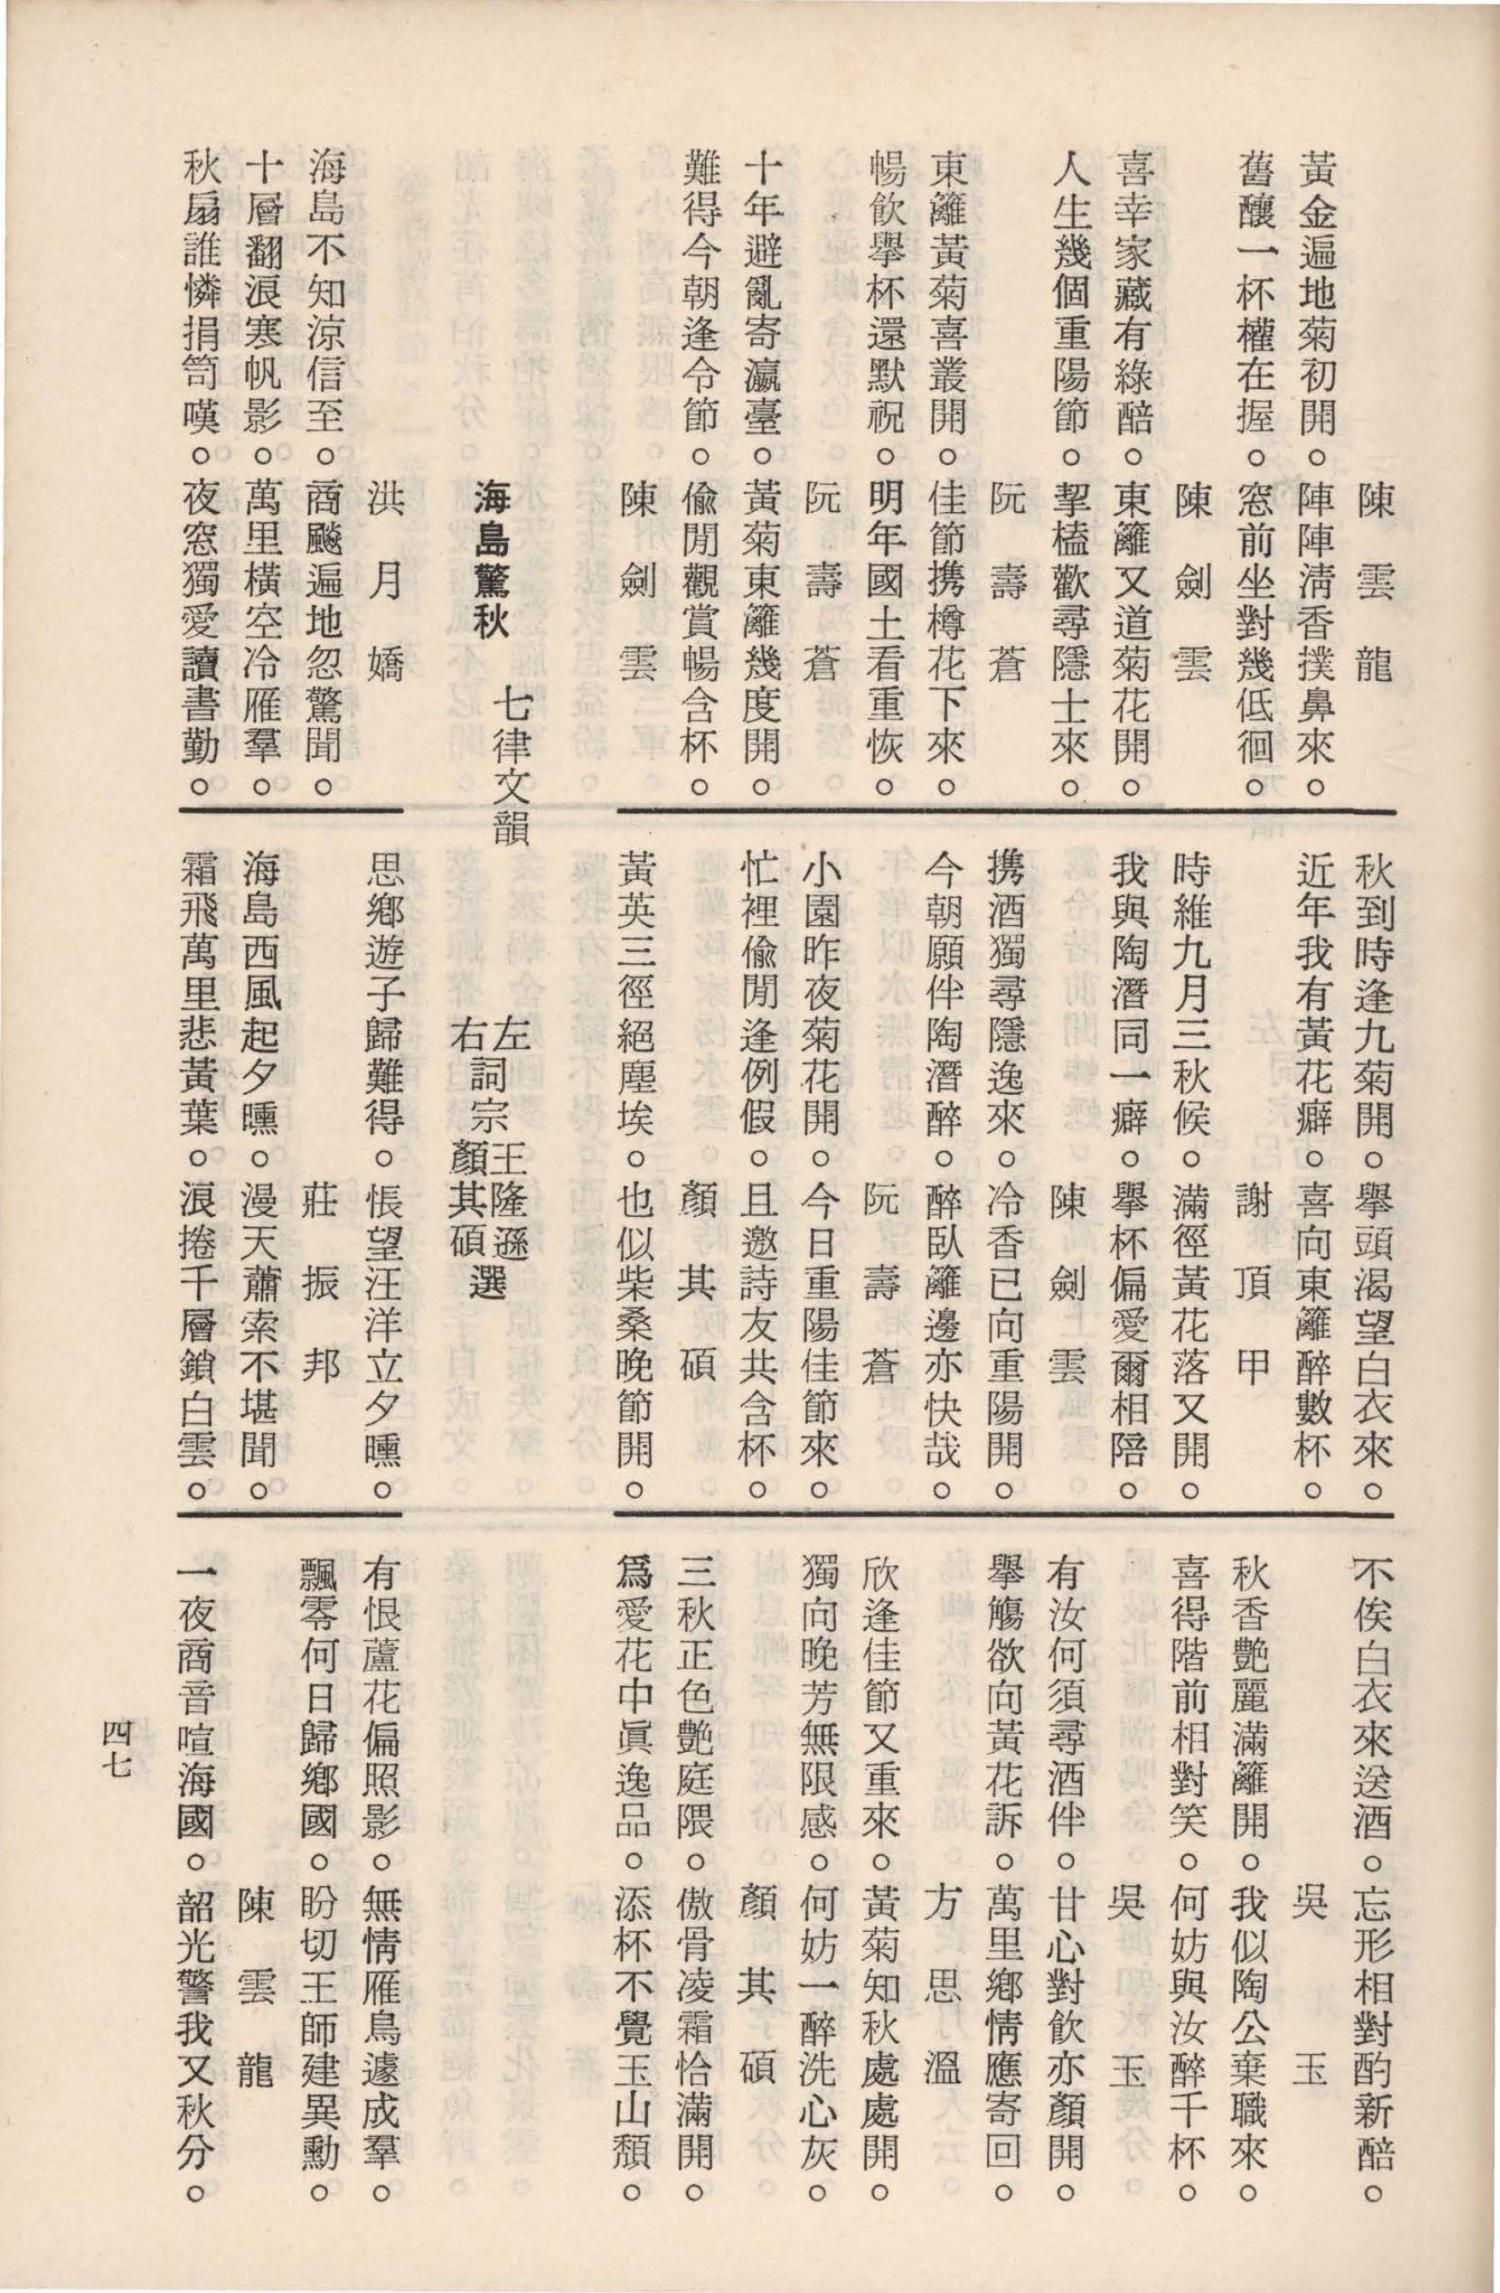 陳雲龍
黃金遍地菊初開。陣陣淸香撲鼻來。
舊釀一杯權在握。窓前坐對幾低徊。
陳劍雲
喜幸家藏有綠醅。東籬又道菊花開。
人生幾個重陽節。挈榼歡尋隱士來。
阮壽蒼
東籬黃菊喜叢開。佳節携樽花下來。
暢飮擧杯還默祝。明年國土看重恢。
阮壽蒼
十年避亂寄瀛臺。黃菊東籬幾度開。
難得今朝逢令節。偸閒觀賞暢含杯。
陳劍雲
秋到時逢九菊開。擧頭渴望白衣來。
近年我有黃花癖。喜向東籬醉數杯。
謝頂甲
時維九月三秋候。滿徑黃花落又開。
我與陶潛同一癖。擧杯偏愛爾相陪。
陳劍雲
携酒獨尋隱逸來。冷香已向重陽開。
今朝願伴陶潛醉。醉臥籬邊亦快哉。
阮壽蒼
小園昨夜菊花開。今日重陽佳節來。
忙裡偸閒逢例假。且邀詩友共含杯。
顏其碩
黃英三徑絕塵埃。也似柴桑晚節開。
不俟白衣來送酒。忘形相對酌新醅。
吳玉
秋香艷麗滿籬開。我似陶公棄職來。
喜得階前相對笑。何妨與汝醉千杯。
吳玉
有汝何須尋酒伴。甘心對飮亦顏開。
擧觴欲向黃花訴。萬里鄉情應寄回。
方思溫
欣逢佳節又重來。黃菊知秋處處開。
獨向晚芳無限感。何妨一醉洗心灰。
顏其碩
三秋正色艷庭隈。傲骨凌霜恰滿開。
爲愛花中眞逸品。添杯不覺玉山頹。
海島驚秋 七律文韻
左詞宗王隆遜選
右詞宗顏其碩選
洪月嬌
海島不知涼信至。商飈遍地忽驚聞。
十層翻浪寒帆影。萬里橫空冷雁羣。
秋扇誰憐捐笥嘆。夜窓獨愛讀書勤。
思鄉遊子歸難得。悵望汪洋立夕曛。
莊振邦
海島西風起夕曛。漫天蕭索不堪聞。
霜飛萬里悲黃葉。浪捲千層鎖白雲。
有恨蘆花偏照影。無情雁鳥遽成羣。
飄零何日歸鄉國。盼切王師建異勳。
陳雲龍
一夜商音喧海國。韶光警我又秋分。
四七